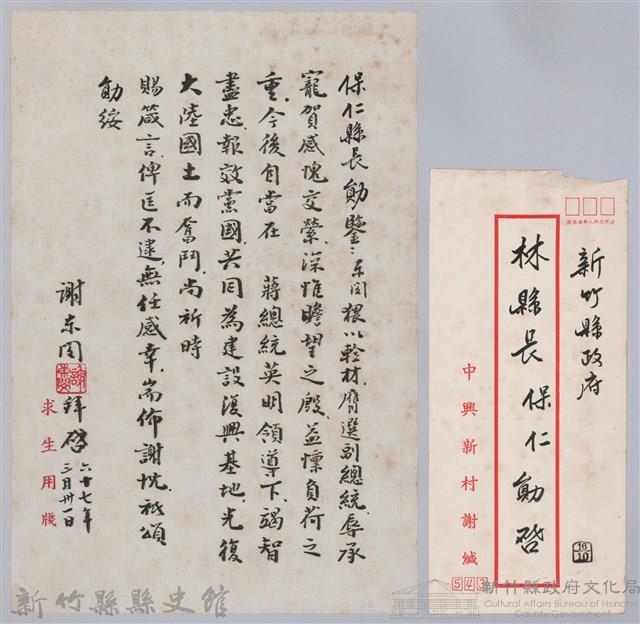 保仁縣長勛鑒：東閔猥以輇材，膺選副總統，辱承
寵賀，感愧交縈，深惟瞻望之殷，益懍負荷之
重，今後自當在　蔣總統英明領導下，竭智
盡忠，報效黨國，共同為建設復興基地，光復
大陸國土而奮鬥，尚祈時
賜箴言，俾匡不逮，無任感幸，耑佈謝忱，祗頌
勛綏
謝東閔
拜啓
六十七年
三月卅一日
求生用牋
新竹縣政府
林縣長保仁勛啓
中興新村謝緘
543
新竹縣縣史館
新竹縣政府文化局
Cultural Affairs Bureau of Hsinchu
County Government